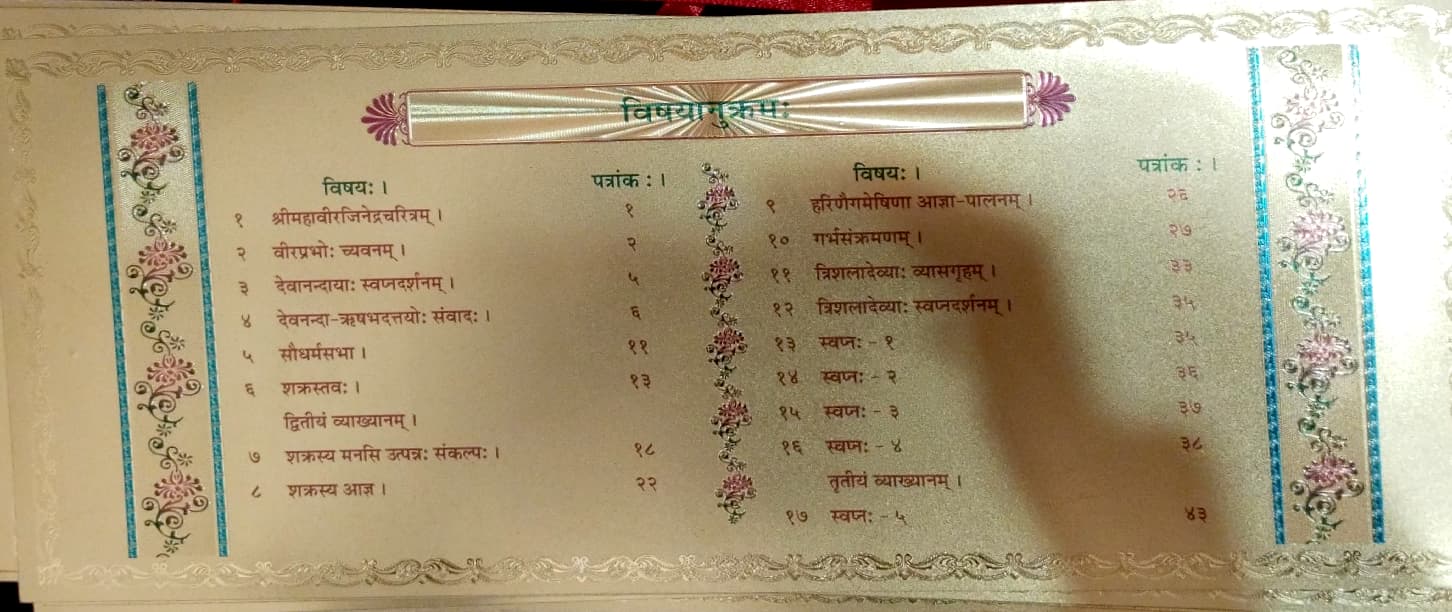 विषयानुक्रमः
विषयः । पत्रांक : ।
१ श्रीमहावीरजिनेद्रचरित्रम् । १
२ वीरप्रभोः च्यवनम् । २
३ देवानन्दायाः स्वप्नदर्शनम् । ५
४ देवनन्दा-ऋषभदत्तयोः संवादः । ६
५ सौधर्मसभा । ११
६ शक्रस्तवः । १३
द्वितीयं व्याख्यानम् ।
७ शक्रस्य मनसि उत्पन्नः संकल्पः । १८
८ शक्रस्य आज्ञ । २२
विषयः । पत्रांक : ।
९ हरिणैगमेषिणा आज्ञा-पालनम् । २६
१० गर्भसंक्रमणम् । २७
११ त्रिशलादेव्याः व्यासगृहम् । ३३
१२ त्रिशलादेव्याः स्वप्नदर्शनम् । ३५
१३ स्वप्नः - १ ३५
१४ स्वप्नः - २ ३६
१५ स्वप्नः - ३ ३७
१६ स्वप्नः - ४ ३८
तृतीयं व्याख्यानम् ।
१७ स्वप्नः - ५ ४३